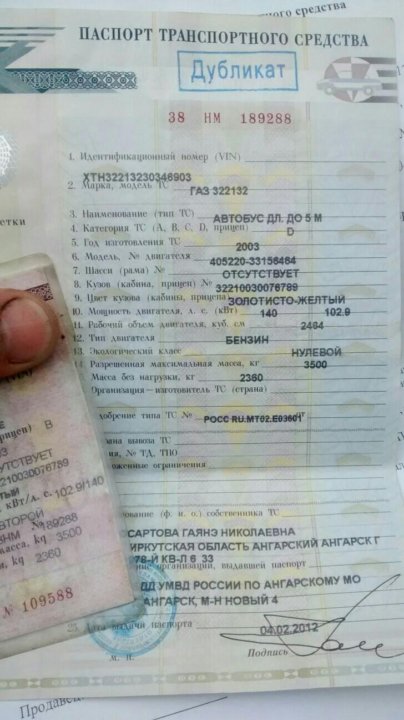 ного средства
ПАСПОРТ ТРАНСПОРТНОГО СРЕДСТВА
Дубликат
38 НМ 189288
1. Идентификационный номер (VIN)
XTH32213230346903
2. Марка, модель ТС ГАЗ 322132
3. Наименование (тип ТС) АВТОБУС ДЛ. ДО 5 М
4. Категория ТС (A, B, C, D, прицеп) D
5. Год изготовления ТС 2003
6. Модель, № двигателя 405220-33156484
7. Шасси (рама) № ОТСУТСТВУЕТ
8. Кузов (кабина, прицеп) № 32210030076789
9. Цвет кузова (кабины, прицепа) ЗОЛОТИСТО-ЖЕЛТЫЙ
10. Мощность двигателя, л. с. (кВт) 140 102.9
11. Рабочий объем двигателя, куб. см 2464
12. Тип двигателя БЕНЗИН
13. Экологический класс НУЛЕВОЙ
14. Разрешенная максимальная масса, кг 3500
Масса без нагрузки, кг 2360
Организация—изготовитель ТС (страна)
добрение типа ТС № РОСС RU.MT02.E03601
ана вывоза ТС
ия, № ТД, ТПО
оженные ограничения
нование (ф. и. о.) собственника ТС
САРТОВА ГАЯНЭ НИКОЛАЕВНА
ИРКУТСКАЯ ОБЛАСТЬ АНГАРСКИЙ АНГАРСК Г
78-Й КВ-Л 6 33
ние организации, выдавшей паспорт
ДД УМВД РОССИИ ПО АНГАРСКОМУ МО
АНГАРСК, М-Н НОВЫЙ 4
25. Дата выдачи паспорта 04.02.2012
М. П.
Подпись
етки
рицеп) B
УТСТВУЕТ
210030076789
ТЫЙ
кВт/л. с. 102.9/140
ВТОРОЙ
НМ №189288
масса, kg 3500
и, kg 2360
№ 109588
Продавец